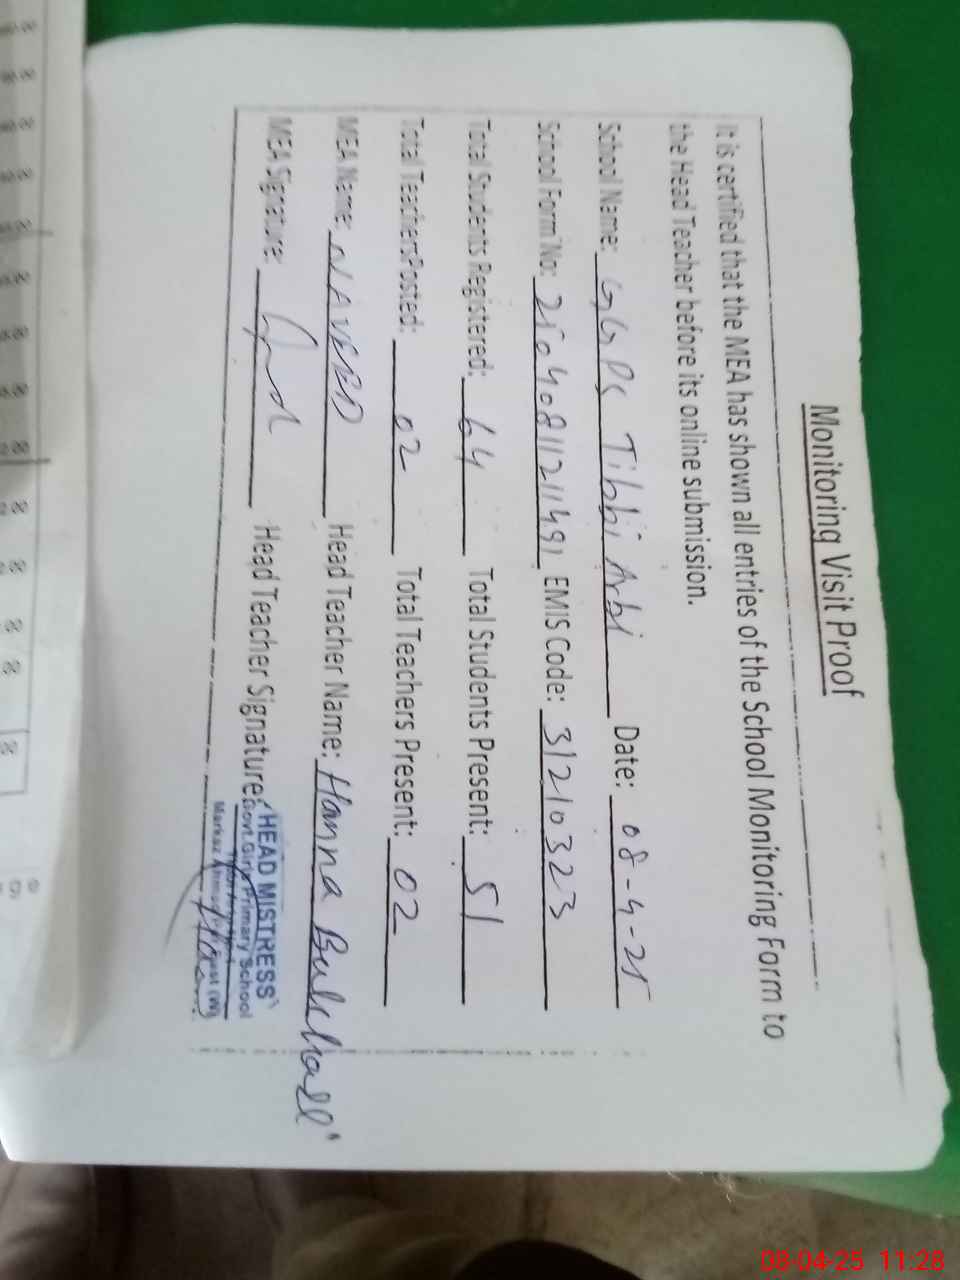 Monitoring Visit Proof
It is certified that the MEA has shown all entries of the School Monitoring Form to
the Head Teacher before its online submission.
School Name: GGPS Tibbi Arbi Date: 08-4-25
School Form No: EMIS Code: 31210323
Total Students Registered: 64 Total Students Present: 51
Total TeachersPosted: 02 Total Teachers Present: 02
MEA Name: NAVEED Head Teacher Name: Hanna
MEA Signature: Head Teacher Signature:
HEAD MISTRESS
Govt.Girls Primary School
Markaz
08-04-25 11:28